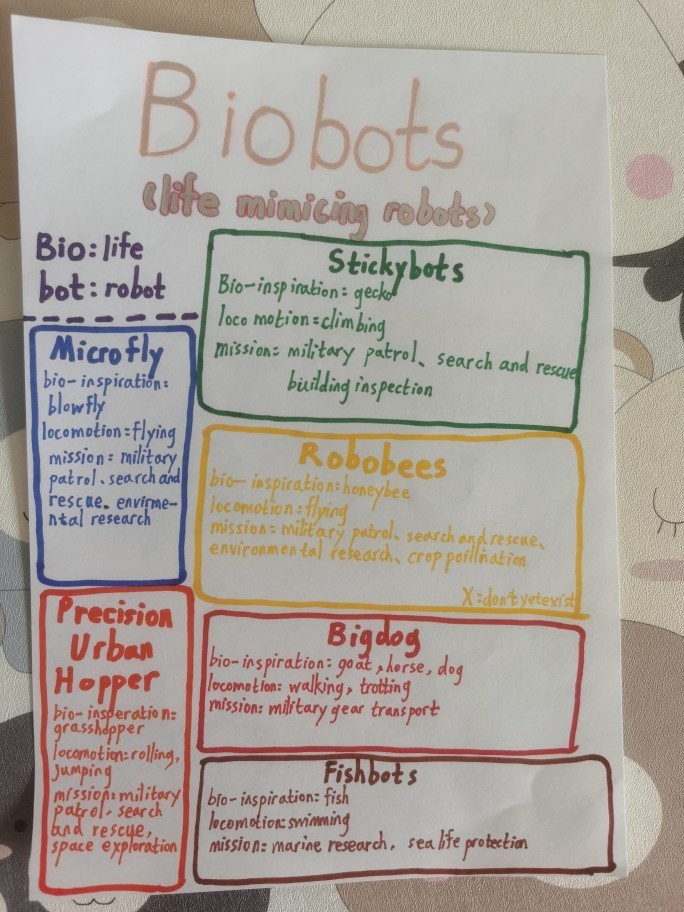 Biobots
(life mimicing robots)
Bio: life
bot: robot
Stickybots
Bio-inspiration: gecko
loco motion: climbing
mission: military patrol、search and rescue
building inspection
Microfly
bio-inspiration:
blowfly
locomotion: flying
mission: military
patrol、search and
rescue、envirme-
ntal research
Robobees
bio-inspiration: honeybee
locomotion: flying
mission: military patrol、search and rescue、
environmental research、crop poillination
X: don't yet exist
Precision
Urban
Hopper
bio-insperation:
grasshopper
locomotion: rolling,
jumping
mission: military
patrol、search
and rescue,
space exploration
Bigdog
bio-inspiration: goat, horse, dog
locomotion: walking, trotting
mission: military gear transport
Fishbots
bio-inspiration: fish
locomotion: swimming
mission: marine research, sea life protection